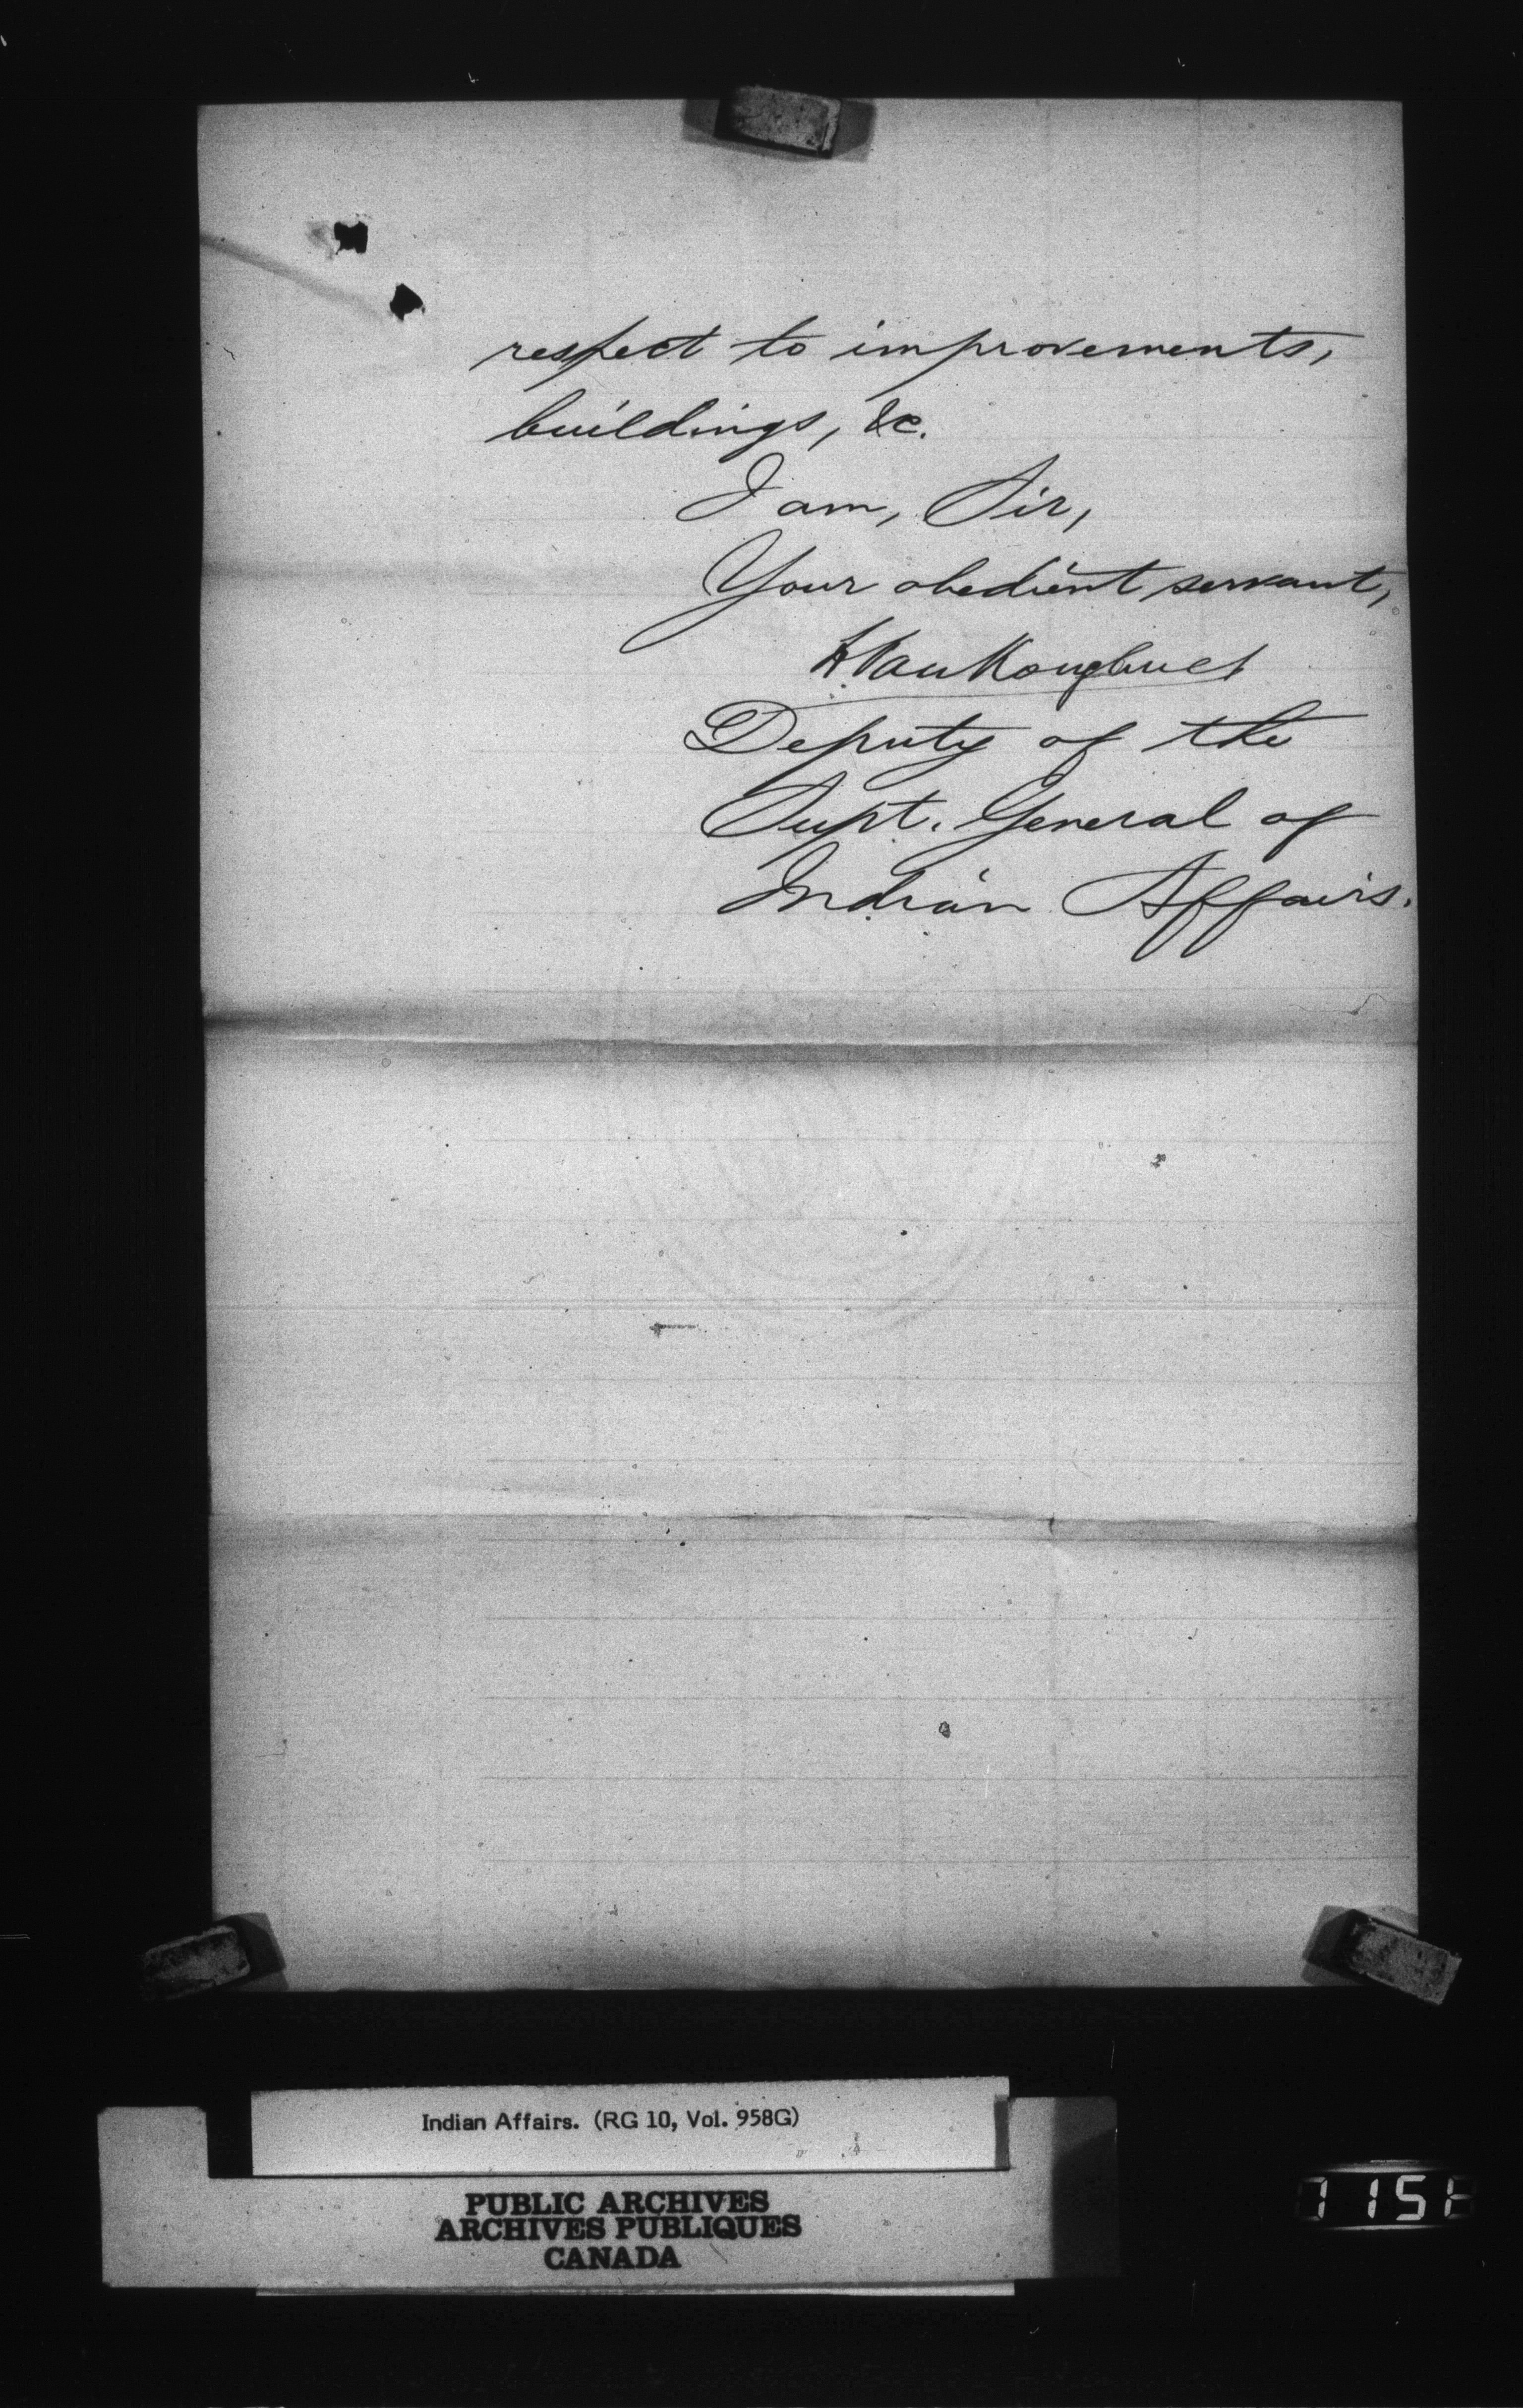 respect to improvements,
buildings, &c.
I am, Sir,
Your obedient servant,
L. VanKoughnet
Deputy of the
Supt. General of
Indian Affairs.
Indian Affairs. (RG 10, Vol. 958G)
PUBLIC ARCHIVES
ARCHIVES PUBLIQUES
CANADA